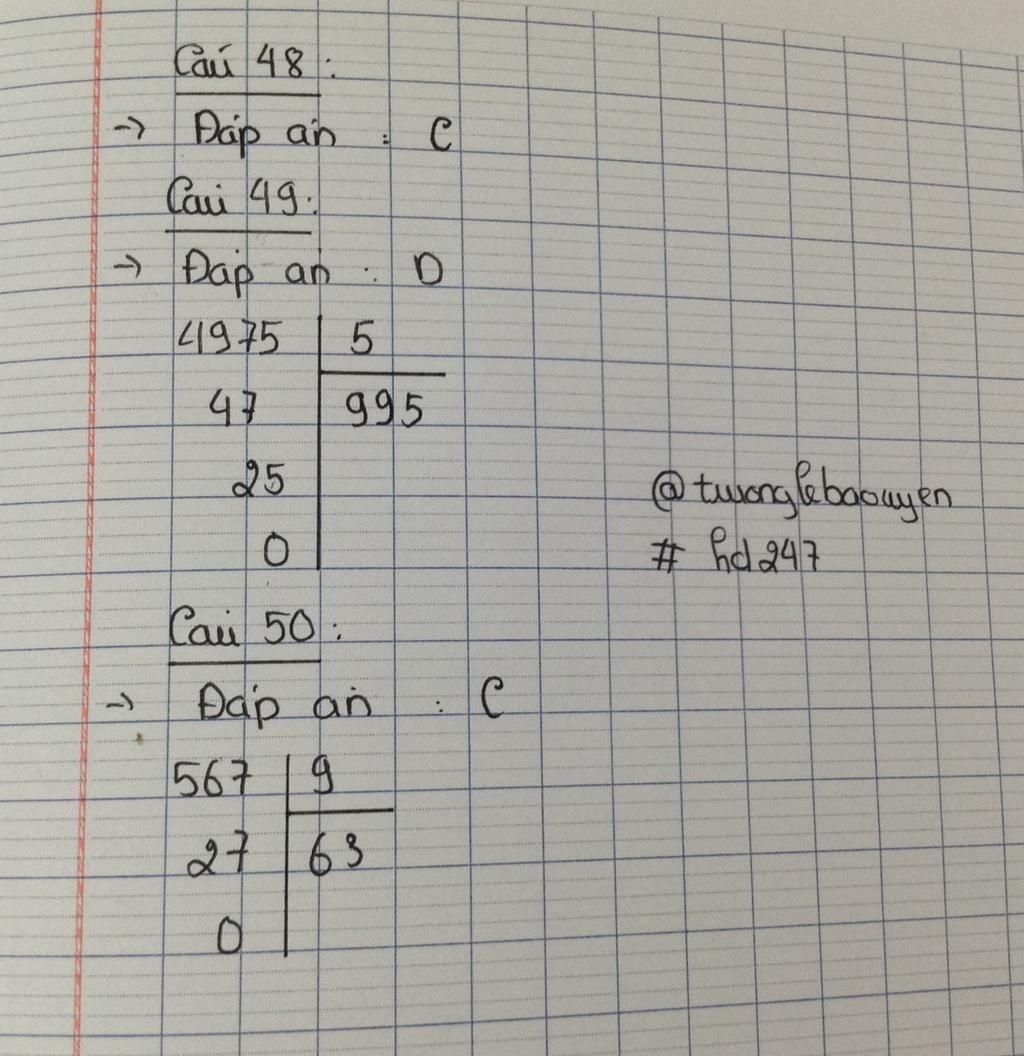 Câu 48:
→ Đáp án : C
Câu 49:
→ Đáp án : D
4975 5
47 995
25
0
@tuonglebaouyen
# hd247
Câu 50:
→ Đáp án : C
567 9
27 63
0